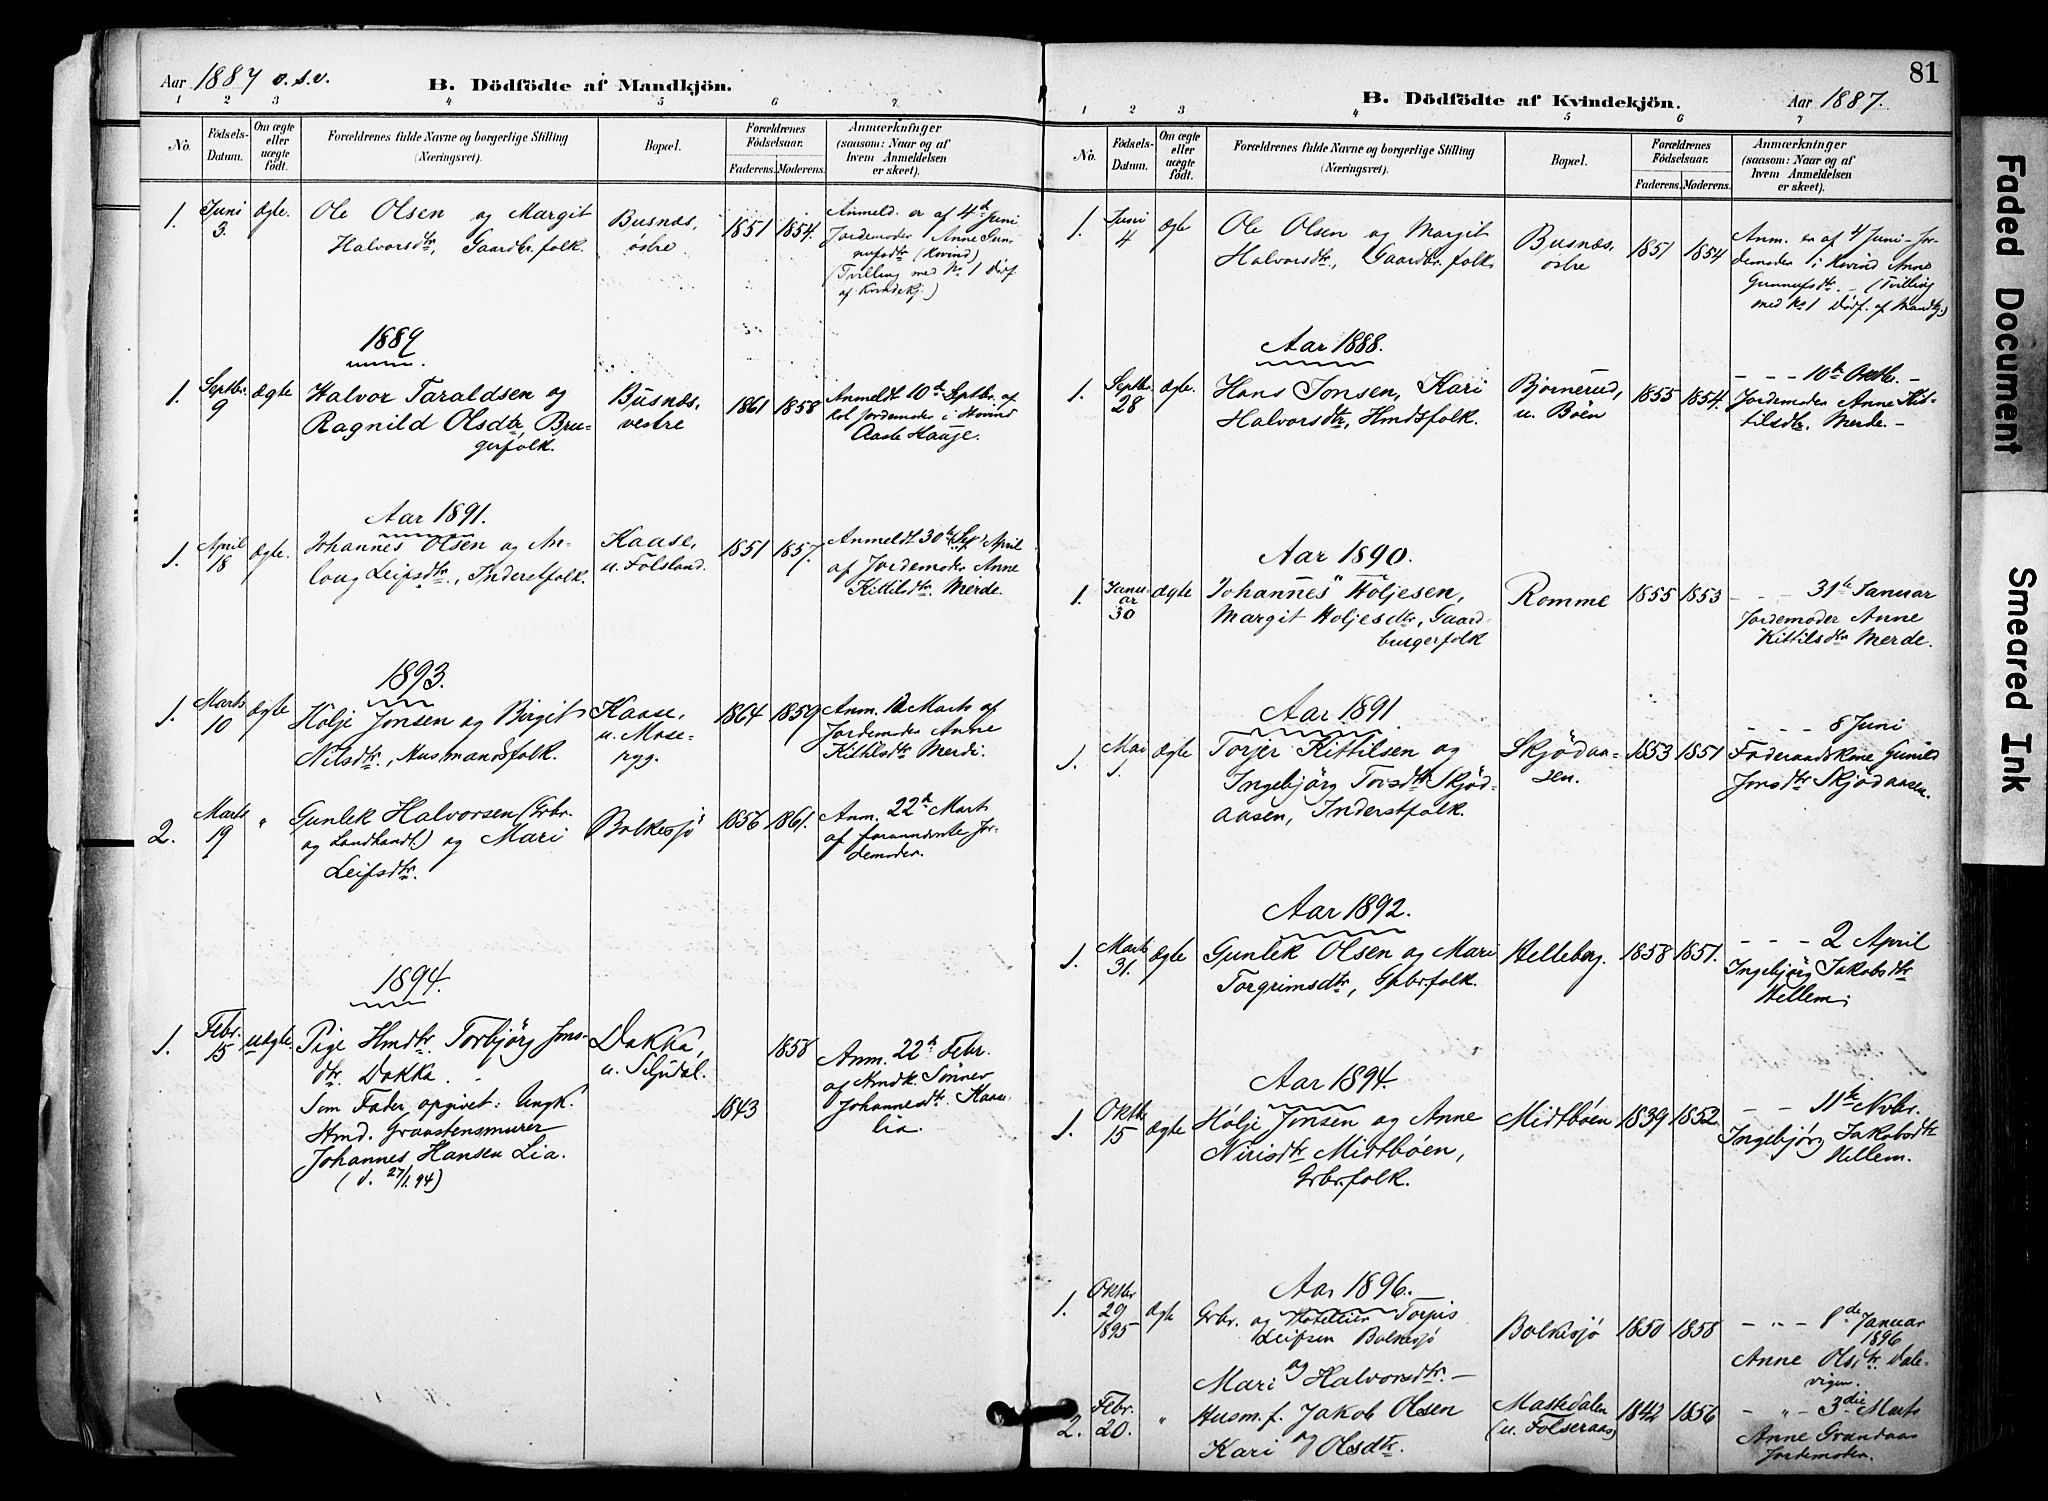 Aar 1887 o.s.v. B. Dödfödte af Mandkjön.
1 2 3 4 5 6 7
No. Fødsels-Datum. Om ægte eller uægte født. Forældrenes fulde Navne og borgerlige Stilling (Næringsvei). Bopæl. Forældrenes Fødselsaar. Faderens. Moderens. Anmærkninger (saasom: Naar og af hvem Anmeldelsen er skeet).
1. Juni 3. Ægte. Ole Olsen og Margit Busnæs, 1851 1854. Anmeld. er af 4de Juni
Halvorsdtr, Gaardbr.folk. östre Jordemoder Anne Gun-
nufsdtr (Hovind)
(Tvilling med No 1 Dödf.
af Kvindekj.)
1889
1. Septbr. 9 Ægte Halvor Taraldsen og Busnæs, 1861 1858 Anmeldt 10de Septbr. af
Ragnild Olsdtr, Bru- vestre Jordemoder i Hovind
gerfolk. Aaste Hauge.
Aar 1891.
1. April 18 Ægte. Johannes Olsen og An- Kaase, 1851 1857. Anmeldt 30te April
laug Leifsdtr, Inderstfolk. u. Folsland. af Jordemoder Anne
Kittilsdtr. Merde.
1893.
1. Marts 10 Ægte Hölje Jonsen og Birgit Kaase, 1864 1859 Anm. 12 Marts af
Nilsdtr, Husmandsfolk. u. Mose- Jordemoder Anne
ryg. Kittilsdtr Merde.
2. Marts 19 " Gunlek Halvorsen (Grbr. Bolkesjö 1856 1861. Anm. 22de Marts
og Landhandl.) og Mari af forannævnte Jor-
Leifsdtr. demoder.
1894.
1. Febr. 15 uægte. Pige Hmdtr. Torbjörg Jons- Dakka, 1858 Anm. 22de Febr.
dtr. Dakka. u. Seljudal. af Hmdk. Sönnev
Som Fader opgivet: Ungk. 1843 Johannesdtr. Kaase-
Hmd. Graastensmurer lia.
Johannes Hansen Lia.
(d. 27/1.94)
B. Dödfödte af Kvindekjön. Aar 1887. 81
1 2 3 4 5 6 7
No. Fødsels-Datum. Om ægte eller uægte født. Forældrenes fulde Navne og borgerlige Stilling (Næringsvei). Bopæl. Forældrenes Fødselsaar. Faderens. Moderens. Anmærkninger (saasom: Naar og af hvem Anmeldelsen er skeet).
1. Juni 4 Ægte Ole Olsen og Margit Busnæs, 1851 1854 Anm. er af 4 Juni - Jor-
Halvorsdtr, Gaardbr.folk östre demoder i Hovind Anne
Gunnufsdtr. - (Tvilling
med No 1 Dödf. af Mandkj.)
Aar 1888.
1. Septbr. 28 Ægte. Hans Jonsen, Kari Bjørnerud, 1855 1854. - - - 10de Oktbr. -
Halvorsdtr, Hmdsfolk. u. Böen Jordemoder Anne Kit-
tilsdtr. Merde. -
Aar 1890.
1. Janu-ar 30 Ægte Johannes Höljesen, Romme 1855 1853 - - - 31te Januar
Margit Höljesdtr, Gaard- Jordemoder Anne
brugerfolk Kittilsdtr Merde.
Aar 1891
1. Mai 1. Ægte Torjer Kittilsen og Skjödaa- 1853 1851 - - - 8 Juni
Ingebjörg Torsdtr Skjöd- sen. Föderaadskone Gunild
aasen, Inderstfolk. Jonsdtr Skjödaasen.
Aar 1892.
1. Marts 31. Ægte Gunlek Olsen og Mari Helleberg. 1858 1851. - - - 2 April
Torgrimsdtr, Grbr.folk. Ingebjörg Jakobsdtr
Hellem.
Aar 1894.
1. Oktbr 15 Ægte Hölje Jonsen og Anne Midtböen 1839 1852. - - 11te Nvbr.
Nirisdtr Midtböen, Ingebjörg Jakobsdtr
Grbr.folk. Hellem.
Aar 1896.
1. Oktbr 29 1895 Ægte Grbr. og Hotellier Torjus Bolkesjö 1850 1858 - " - 8de Januar 1896
Leifsen Bolkesjö Anne Olsdtr. Dale-
og vigen.
Mari Halvorsdtr. -
2. Febr. 20. " Husm.f. Jakob Olsen Mastedalen 1842 1856 - " - 3die Marts
og (u. Folseraas) Anne Grandaas
Kari Olsdtr. Jordemoder.
Faded Document
Smeared Ink